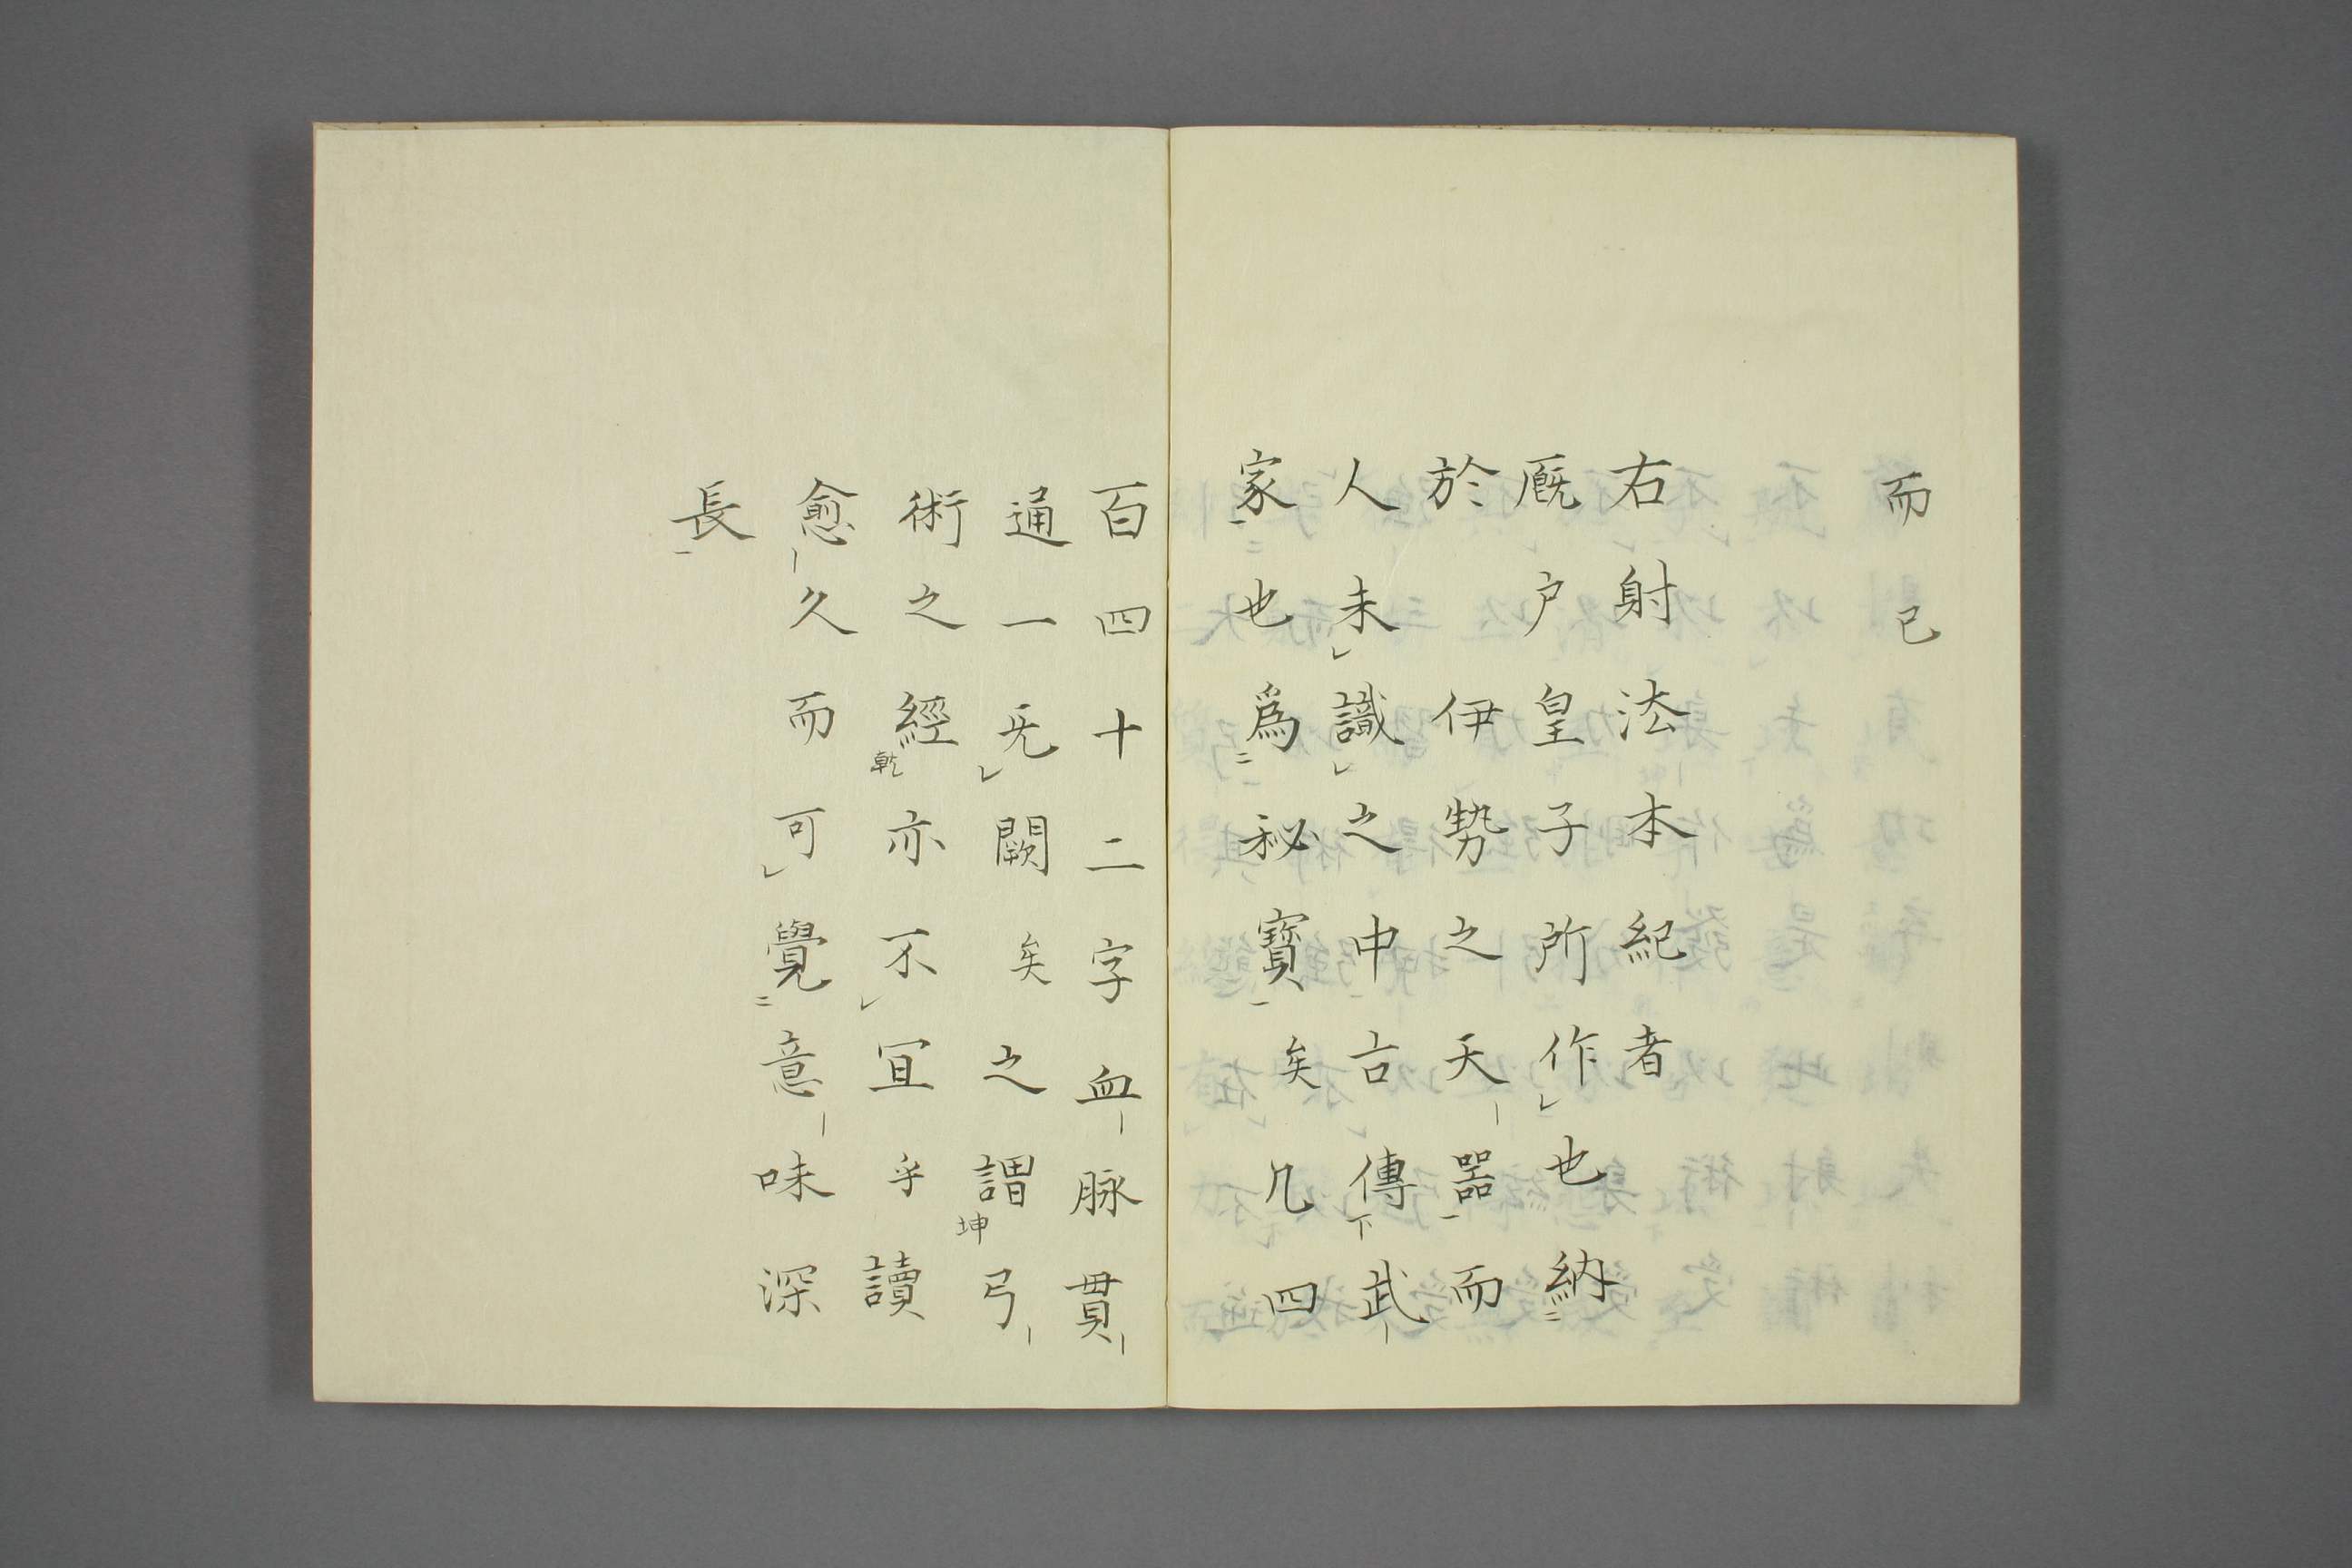 而已
右射法本紀者
厩户皇子所作㆑也納㆓
於伊勢之天-器㆒而
人未㆑識㆑之中古傳㆘武-
家㆒也爲㆓秘寳㆒矣凡四
百四十二字血-脉貫-
通一无㆑闕矣之謂坤弓-
術之經乾亦不㆑宜乎讀
愈-久而可㆑覺㆓意-味深
長㆒